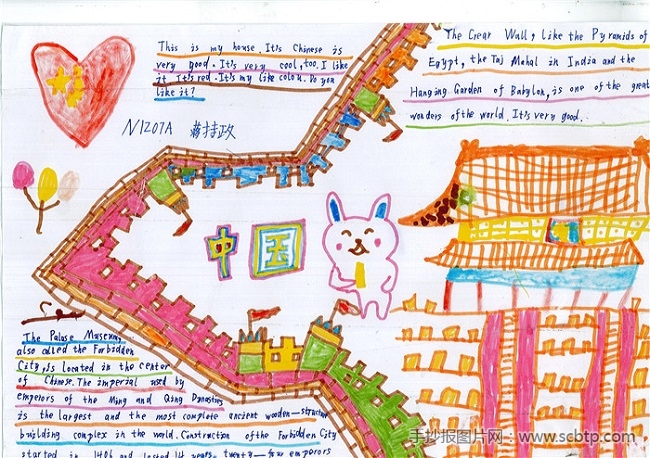 This is my house. It's Chinese is
very good. It's very cool, too. I like
it It's red. It's my like colou. Do you
like it?
N1207A
The Crear Wall, like the Pyramids of
Egypt, the Taj Mahal in India and the
Hanging Garden of Babylon, is one of the great
wonders of the world. It's very good.
中国
The Palase Museum,
also called the Forbidden
City, is located in the center
of Chinese. The imperial used by
emperors of the Ming and Qing Dynasties
is the largest and the most complete ancient wooden—
building complex in the world. Construction of the Forbidden City
started in 1406 and lasted 14 years. twenty—four emperors
手抄报图片网：www.scbtp.com